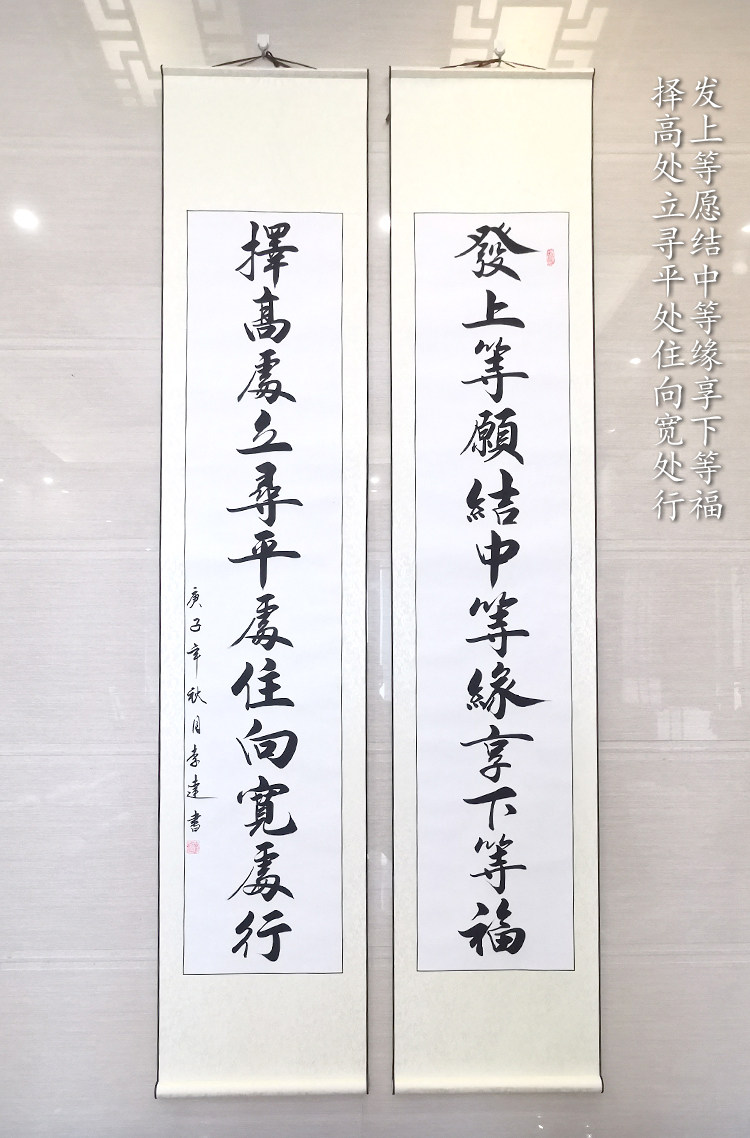 发上等愿结中等缘享下等福
择高处立寻平处住向宽处行
發上等願結中等緣享下等福
擇高處立尋平處住向寬處行
庚子年秋月李達書